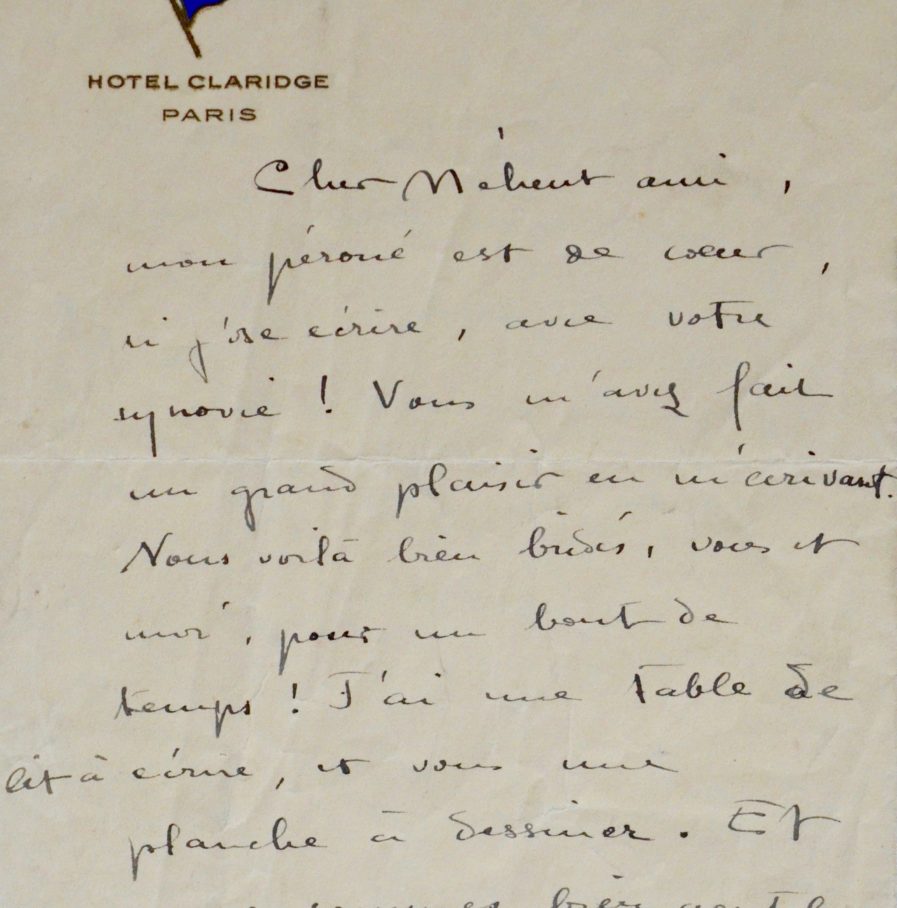 HOTEL CLARIDGE
PARIS
Cher Méheut ami,
mon péroné est de cœur,
si j'ose écrire, avec votre
synovie ! Vous m'avez fait
un grand plaisir en m'écrivant.
Nous voilà bien bridés, vous et
moi, pour un bout de
temps ! J'ai une table de
lit à écrire, et vous une
planche à dessiner. Et
sommes bien